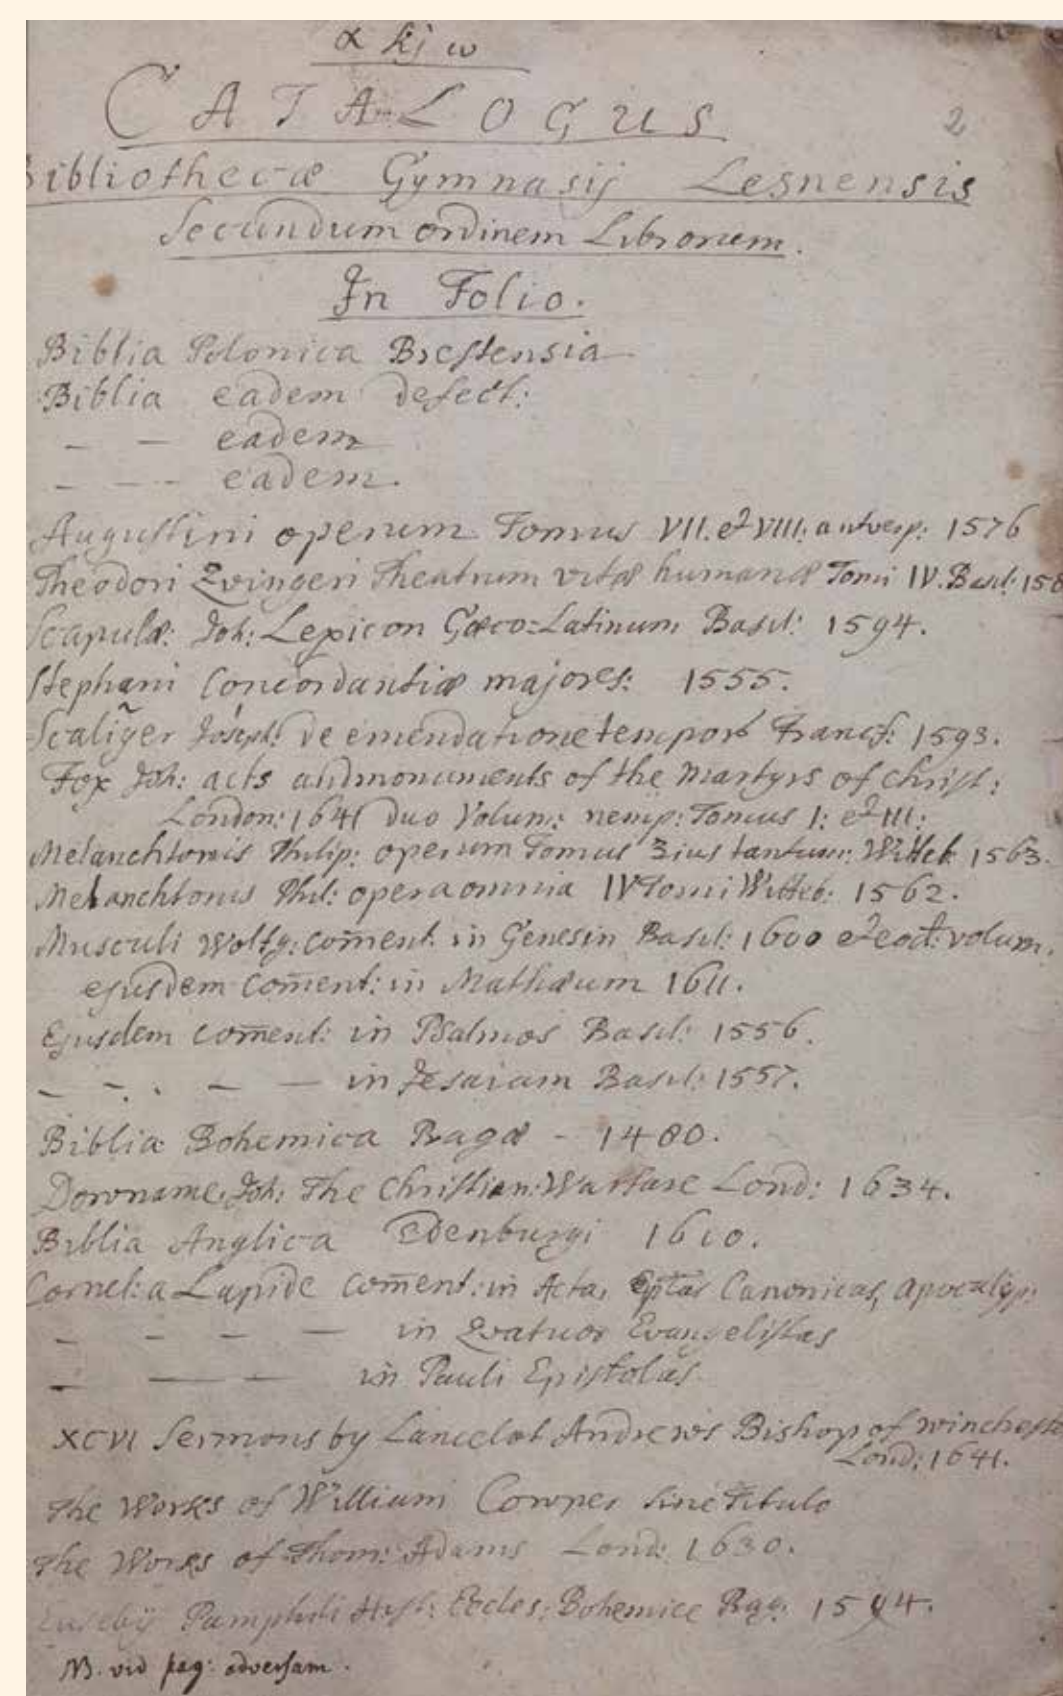 α kj ω
CATALOGUS
2
Bibliothecæ Gymnasij Lesnensis
Secundum ordinem Librorum.
In Folio.
Biblia Polonica Brestensia
Biblia eadem defect:
— — eadem
— — — eadem.
Augustini operum Tomus VII. et VIII: antverp: 1576
Theodori Zvingeri Theatrum vitæ humanæ Tomi IV. Basil: 158
Scapulæ: Joh: Lexicon Græco-Latinum Basil: 1594.
Stephani Concordantiæ majores: 1555.
Scaliger Joseph: de emendatione tempor Francf: 1593.
Fox Joh: acts and monuments of the Martyrs of Christ:
London: 1641 duo Volum: nemp: Tomus I: et III:
Melanchtonis Philip: operum Tomus 3ius tantum: Witteb 1563.
Melanchtonis Phil: opera omnia IV Tomi Witteb: 1562.
Musculi Wolfg: com̄ent: in Genesin Basil: 1600 et eod: volum.
ejusdem com̄ent: in Mathæum 1611.
Ejusdem com̄ent: in Psalmos Basil: 1556.
— — — — in Jesaiam Basil: 1557.
Biblia Bohemica Pragæ - 1480.
Downame, Joh: The Christian: Warfare Lond: 1634.
Biblia Anglica Edenburgi 1610.
Cornel: a Lapide com̄ent: in Acta, Eptas Canonicas, Apocalyp:
— — — — in Qvatuor Evangelistas
— — — in Pauli Epistolas
XCVI Sermons by Lancelot Andrews Bishop of Winchest
Lond: 1641.
The Works of William Cowper sine Titulo
The Works of Thom: Adams Lond: 1630.
Eusebij Pamphili Hist: Eccles: Bohemice Prag: 1594.
NB. vid pag: adversam.